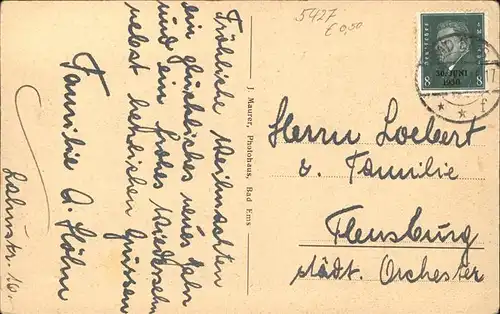 Fröhliche Weihnachten
ein glückliches neues Jahr
und ein frohes Wiedersehn
nebst herzlichen Grüssen
Familie A. Höhn
Lahnstr. 16.
J. Maurer, Photohaus, Bad Ems
5427
€ 0,50
8 8
30. JUNI
1930
Herrn Loebert
u. Familie
Flensburg
städt. Orchester